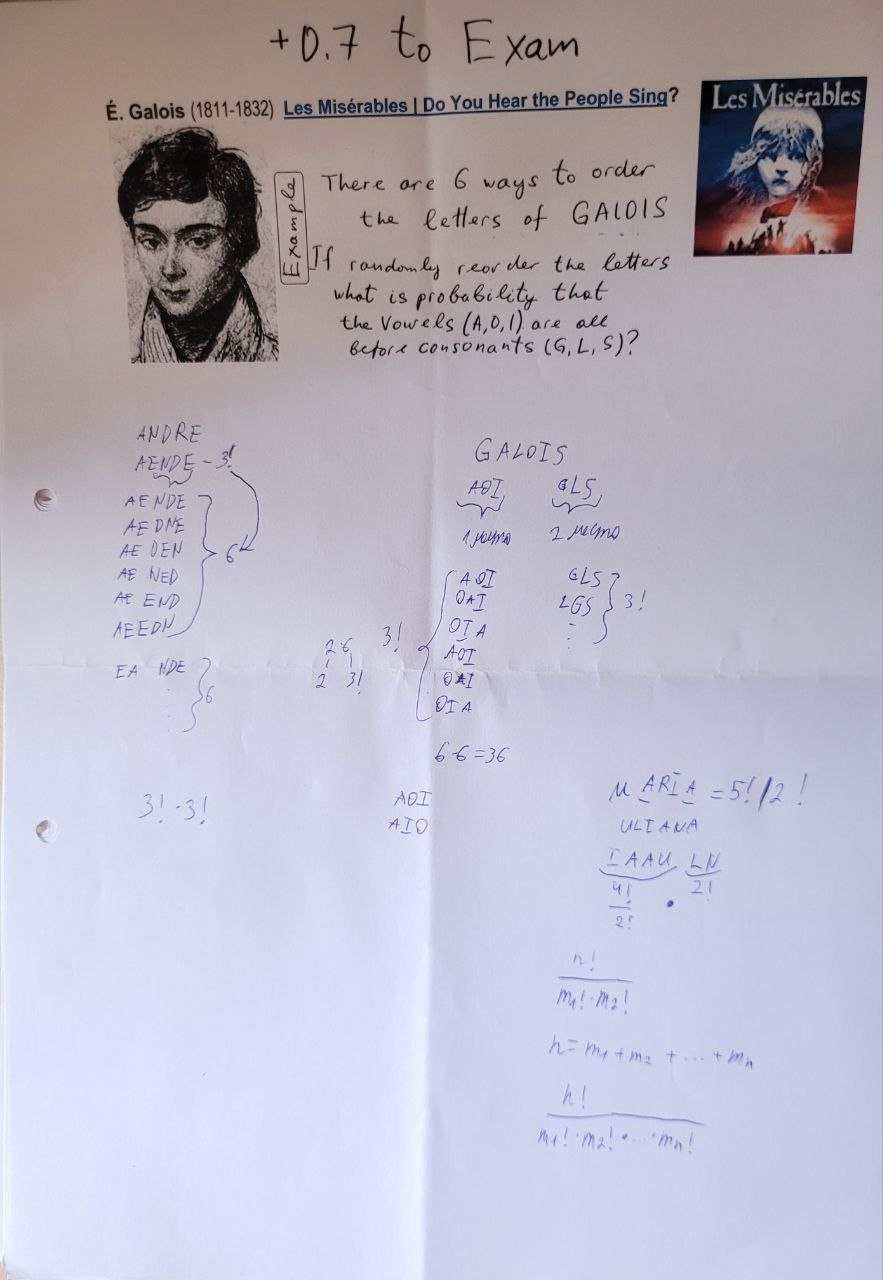 +0.7 to Exam
É. Galois (1811-1832) Les Misérables | Do You Hear the People Sing?
Les Misérables
Example
There are 6 ways to order
the letters of GALOIS
If randomly reorder the letters
what is probability that
the Vowels (A,O,I) are all
before consonants (G,L,S)?
ANDRE
AENDE - 3!
AE NDE
AE DNE
AE DEN
AE NED
AE END
AEEDN
6
EA NDE
6
2·6
2 3!
3! · 3!
GALOIS
AOI GLS
1 место 2 место
AOI GLS
OAI LGS
OIA
AOI
OAI
OIA
3!
3!
6·6=36
AOI
AIO
MARIA = 5!/2!
ULIANA
IAAU LN
4! 2!
2!
n!
m1! · m2!
n = m1 + m2 + ... + mn
n!
m1! · m2! · ... · mn!